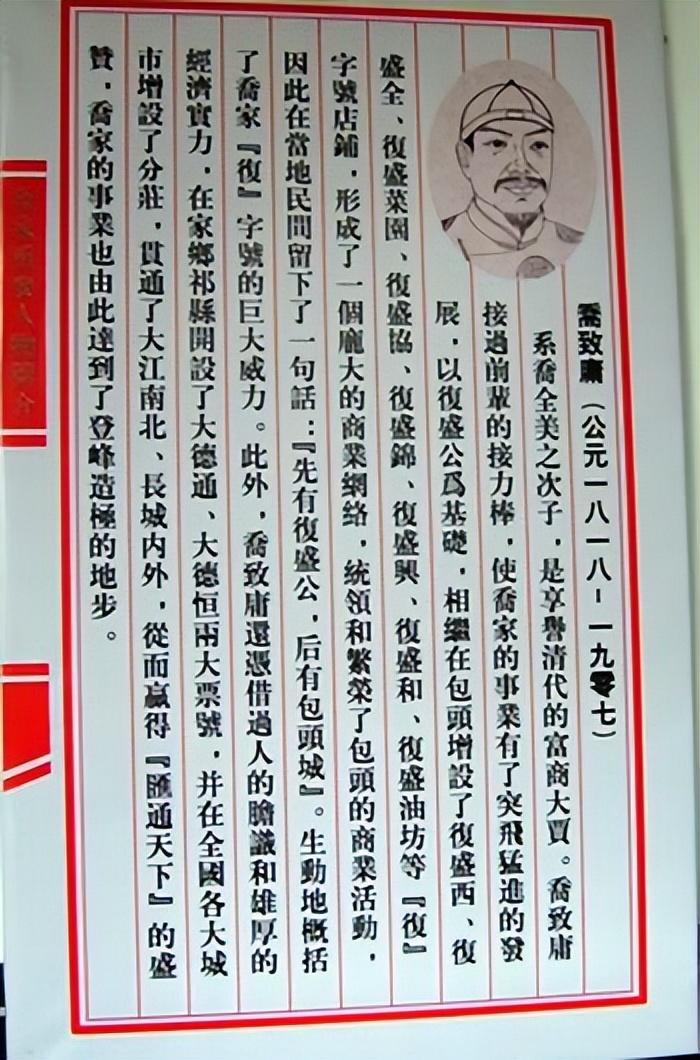 喬致庸（公元一八一八－一九零七）
系喬全美之次子，是享譽清代的富商大賈。喬致庸
接過前輩的接力棒，使喬家的事業有了突飛猛進的發
展，以復盛公爲基礎，相繼在包頭增設了復盛西、復
盛全、復盛菜園、復盛協、復盛錦、復盛興、復盛和、復盛油坊等『復』
字號店鋪，形成了一個龐大的商業網絡，統領和繁榮了包頭的商業活動，
因此在當地民間留下了一句話：『先有復盛公，后有包頭城』。生動地概括
了喬家『復』字號的巨大威力。此外，喬致庸還憑借過人的膽識和雄厚的
經濟實力，在家鄉祁縣開設了大德通、大德恒兩大票號，并在全國各大城
市增設了分莊，貫通了大江南北、長城内外，從而贏得『匯通天下』的盛
贊，喬家的事業也由此達到了登峰造極的地步。